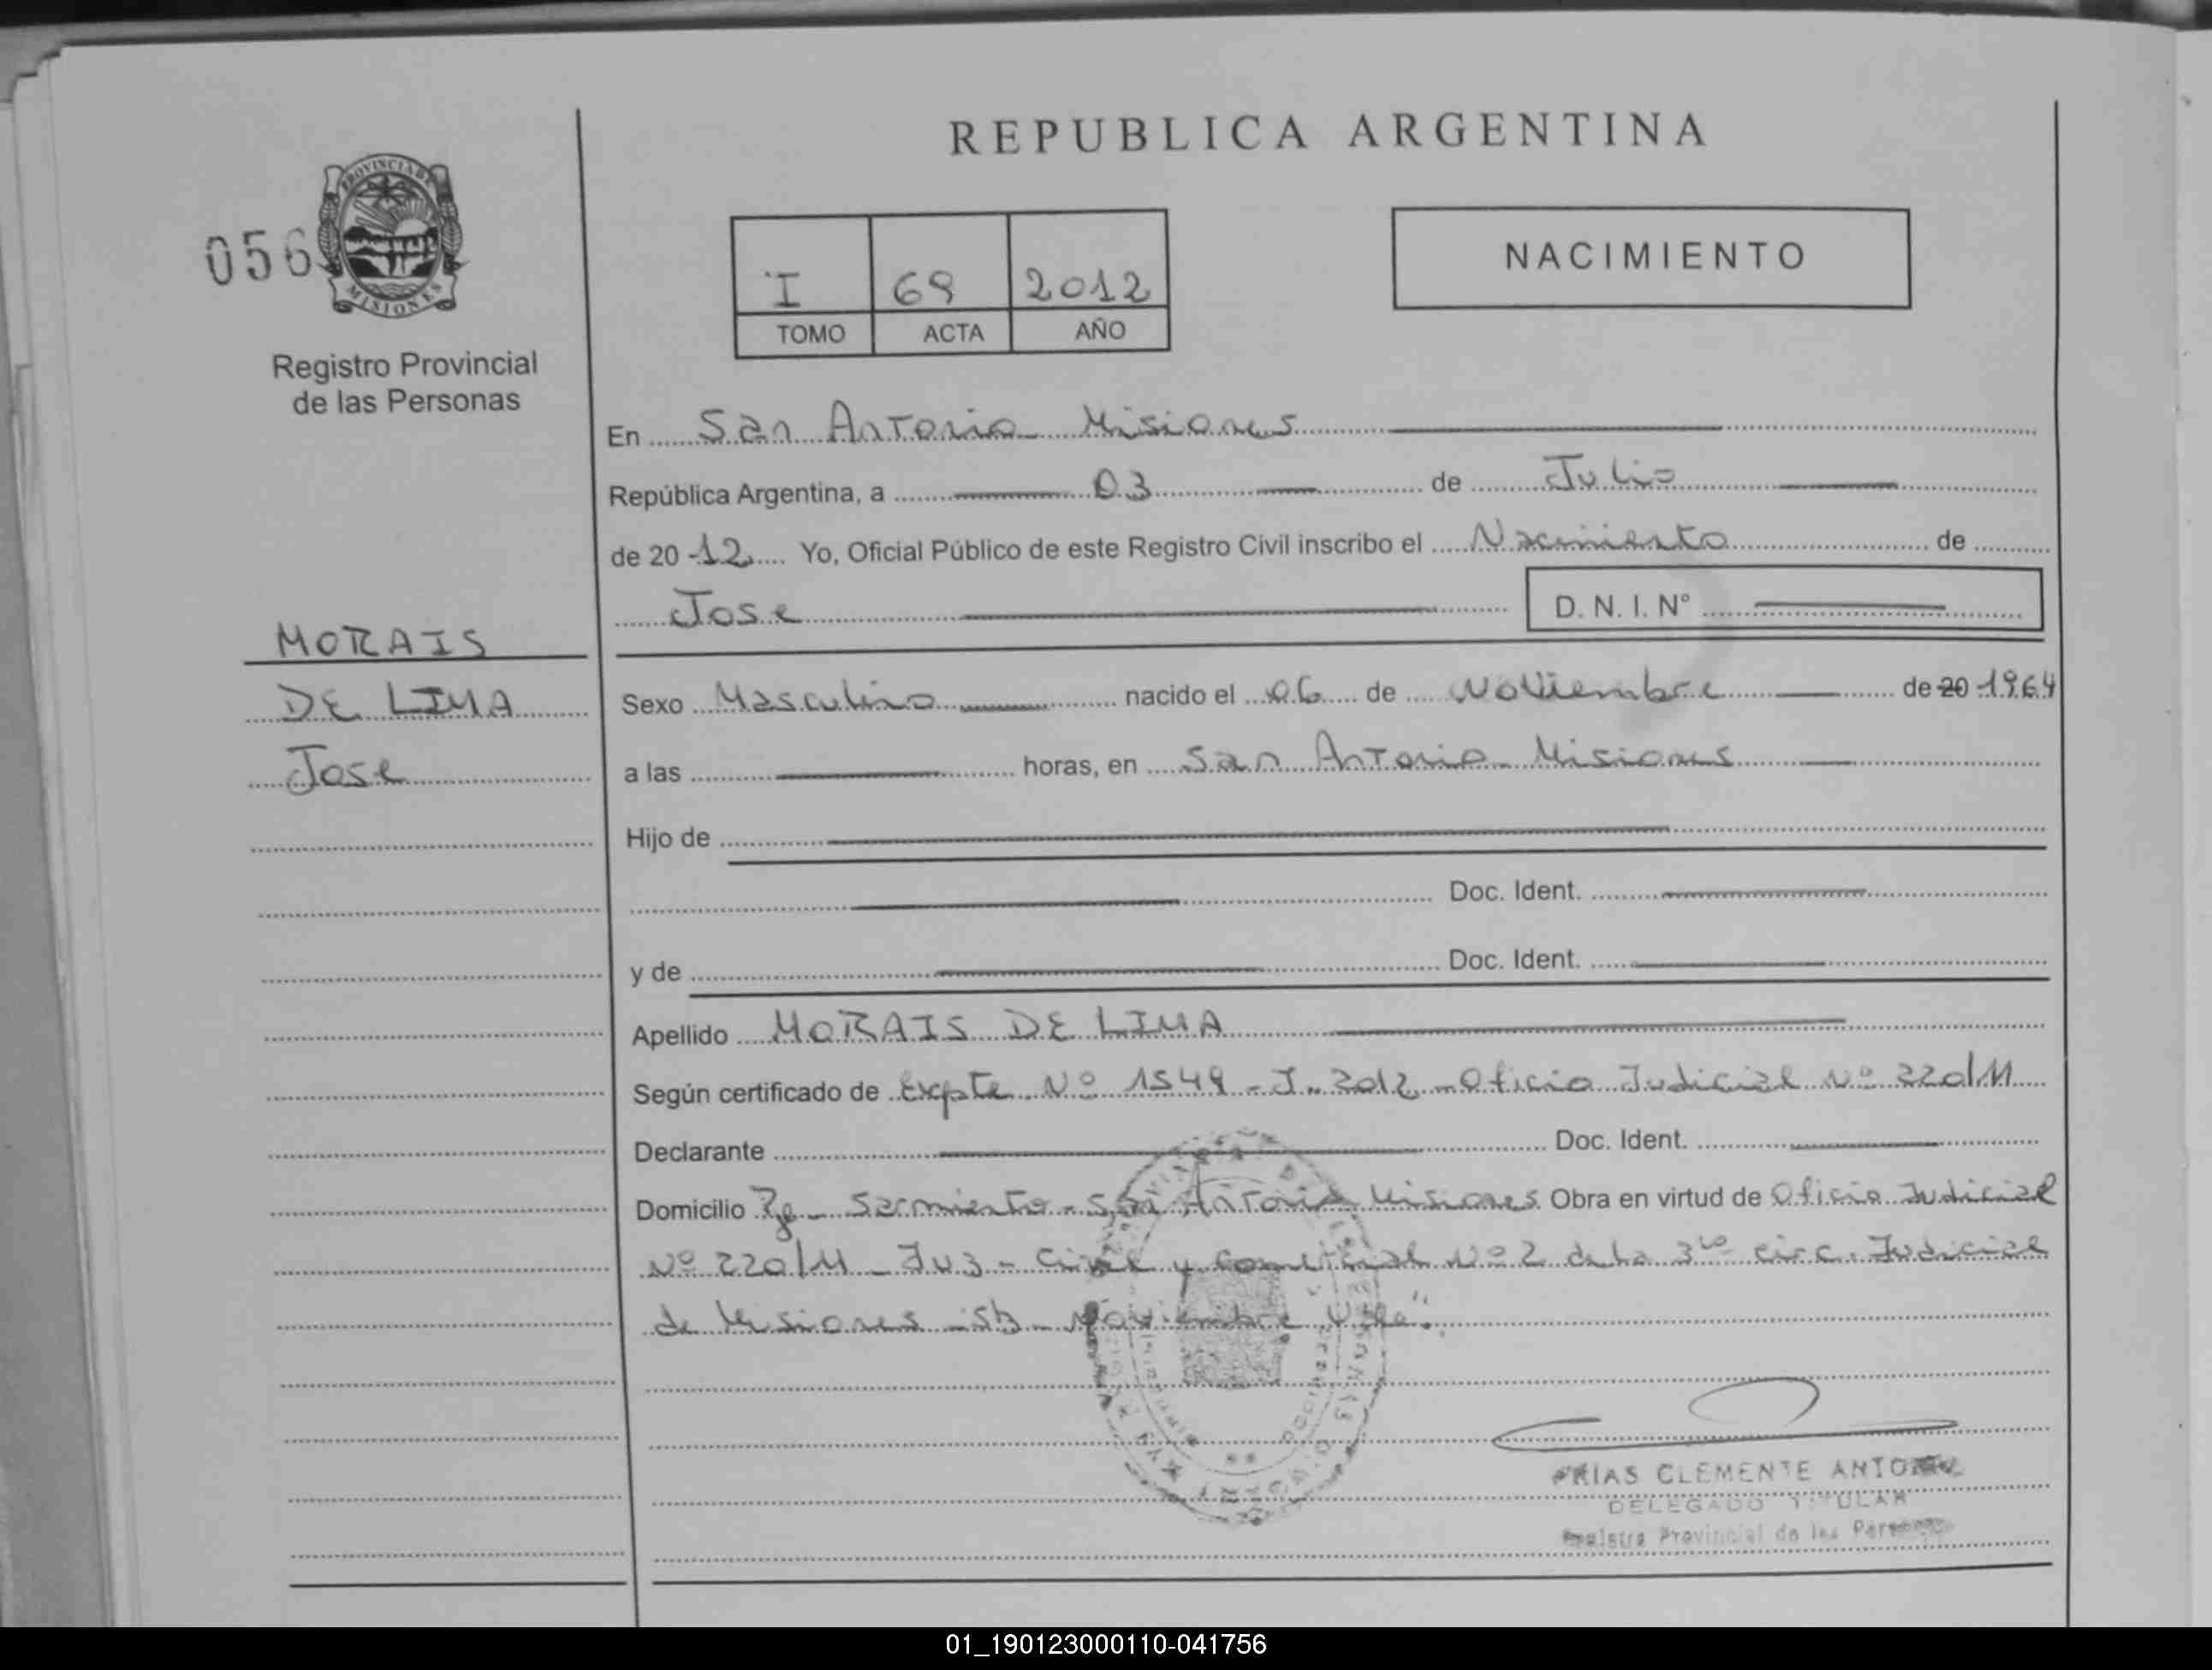 REPUBLICA ARGENTINA
056
PROVINCIA DE
MISIONES
Registro Provincial
de las Personas
I 69 2012
TOMO ACTA AÑO
NACIMIENTO
En San Antonio Misiones
República Argentina, a 03 de Julio
de 2012 Yo, Oficial Público de este Registro Civil inscribo el Nacimiento de
Jose D. N. I. N°
MORAIS
DE LIMA
Jose
Sexo Masculino nacido el 06 de Noviembre de 20 1964
a las horas, en San Antonio Misiones
Hijo de
Doc. Ident.
y de Doc. Ident.
Apellido MORAIS DE LIMA
Según certificado de Expte. Nº 1549 - J - 2012 - Oficio Judicial Nº 220/11
Declarante Doc. Ident.
Domicilio Sarmiento - San Antonio Misiones Obra en virtud de Oficio Judicial
Nº 220/11 - Juz - Civil y Comercial Nº 2 de la 3ra Circ. Judicial
de Misiones - Noviembre Vale".
FRIAS CLEMENTE ANTONIO
DELEGADO TITULAR
Registro Provincial de las Personas
01_190123000110-041756